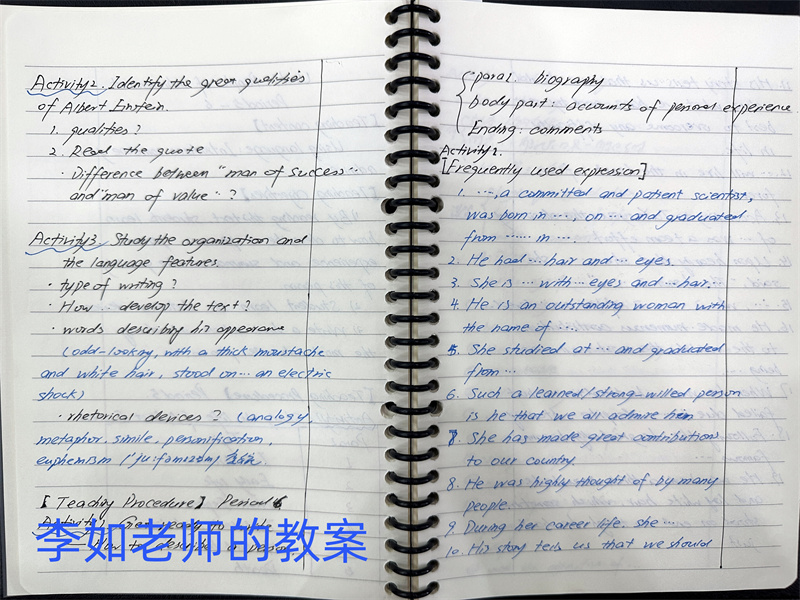 Activity2. Identify the great qualities
of Albert Einstein.
1. qualities?
2. Read the quote
· Difference between "man of success"
and "man of value"?
Activity3. Study the organization and
the language features.
· type of writing?
· How ... develop the text?
· words describing his appearance
(odd-looking, with a thick moustache
and white hair, stood on... an electric
shock)
· rhetorical devices? (analogy,
metaphor, simile, personification,
euphemism
[Teaching Procedure] Period 6
Activity1.
How to describe a person
李如老师的教案
para1: biography
body part: accounts of personal experience
Ending: comments
Activity2.
[Frequently used expression]
1. ..., a committed and patient scientist,
was born in ..., on ... and graduated
from ...... in ....
2. He had ... hair and ... eyes.
3. She is ... with ... eyes and ... hair...
4. He is an outstanding woman with
the name of ...
5. She studied at ... and graduated
from...
6. Such a learned/strong-willed person
is he that we all admire him
7. She has made great contributions
to our country.
8. He was highly thought of by many
people.
9. During her career life, she ...
10. His story tells us that we should